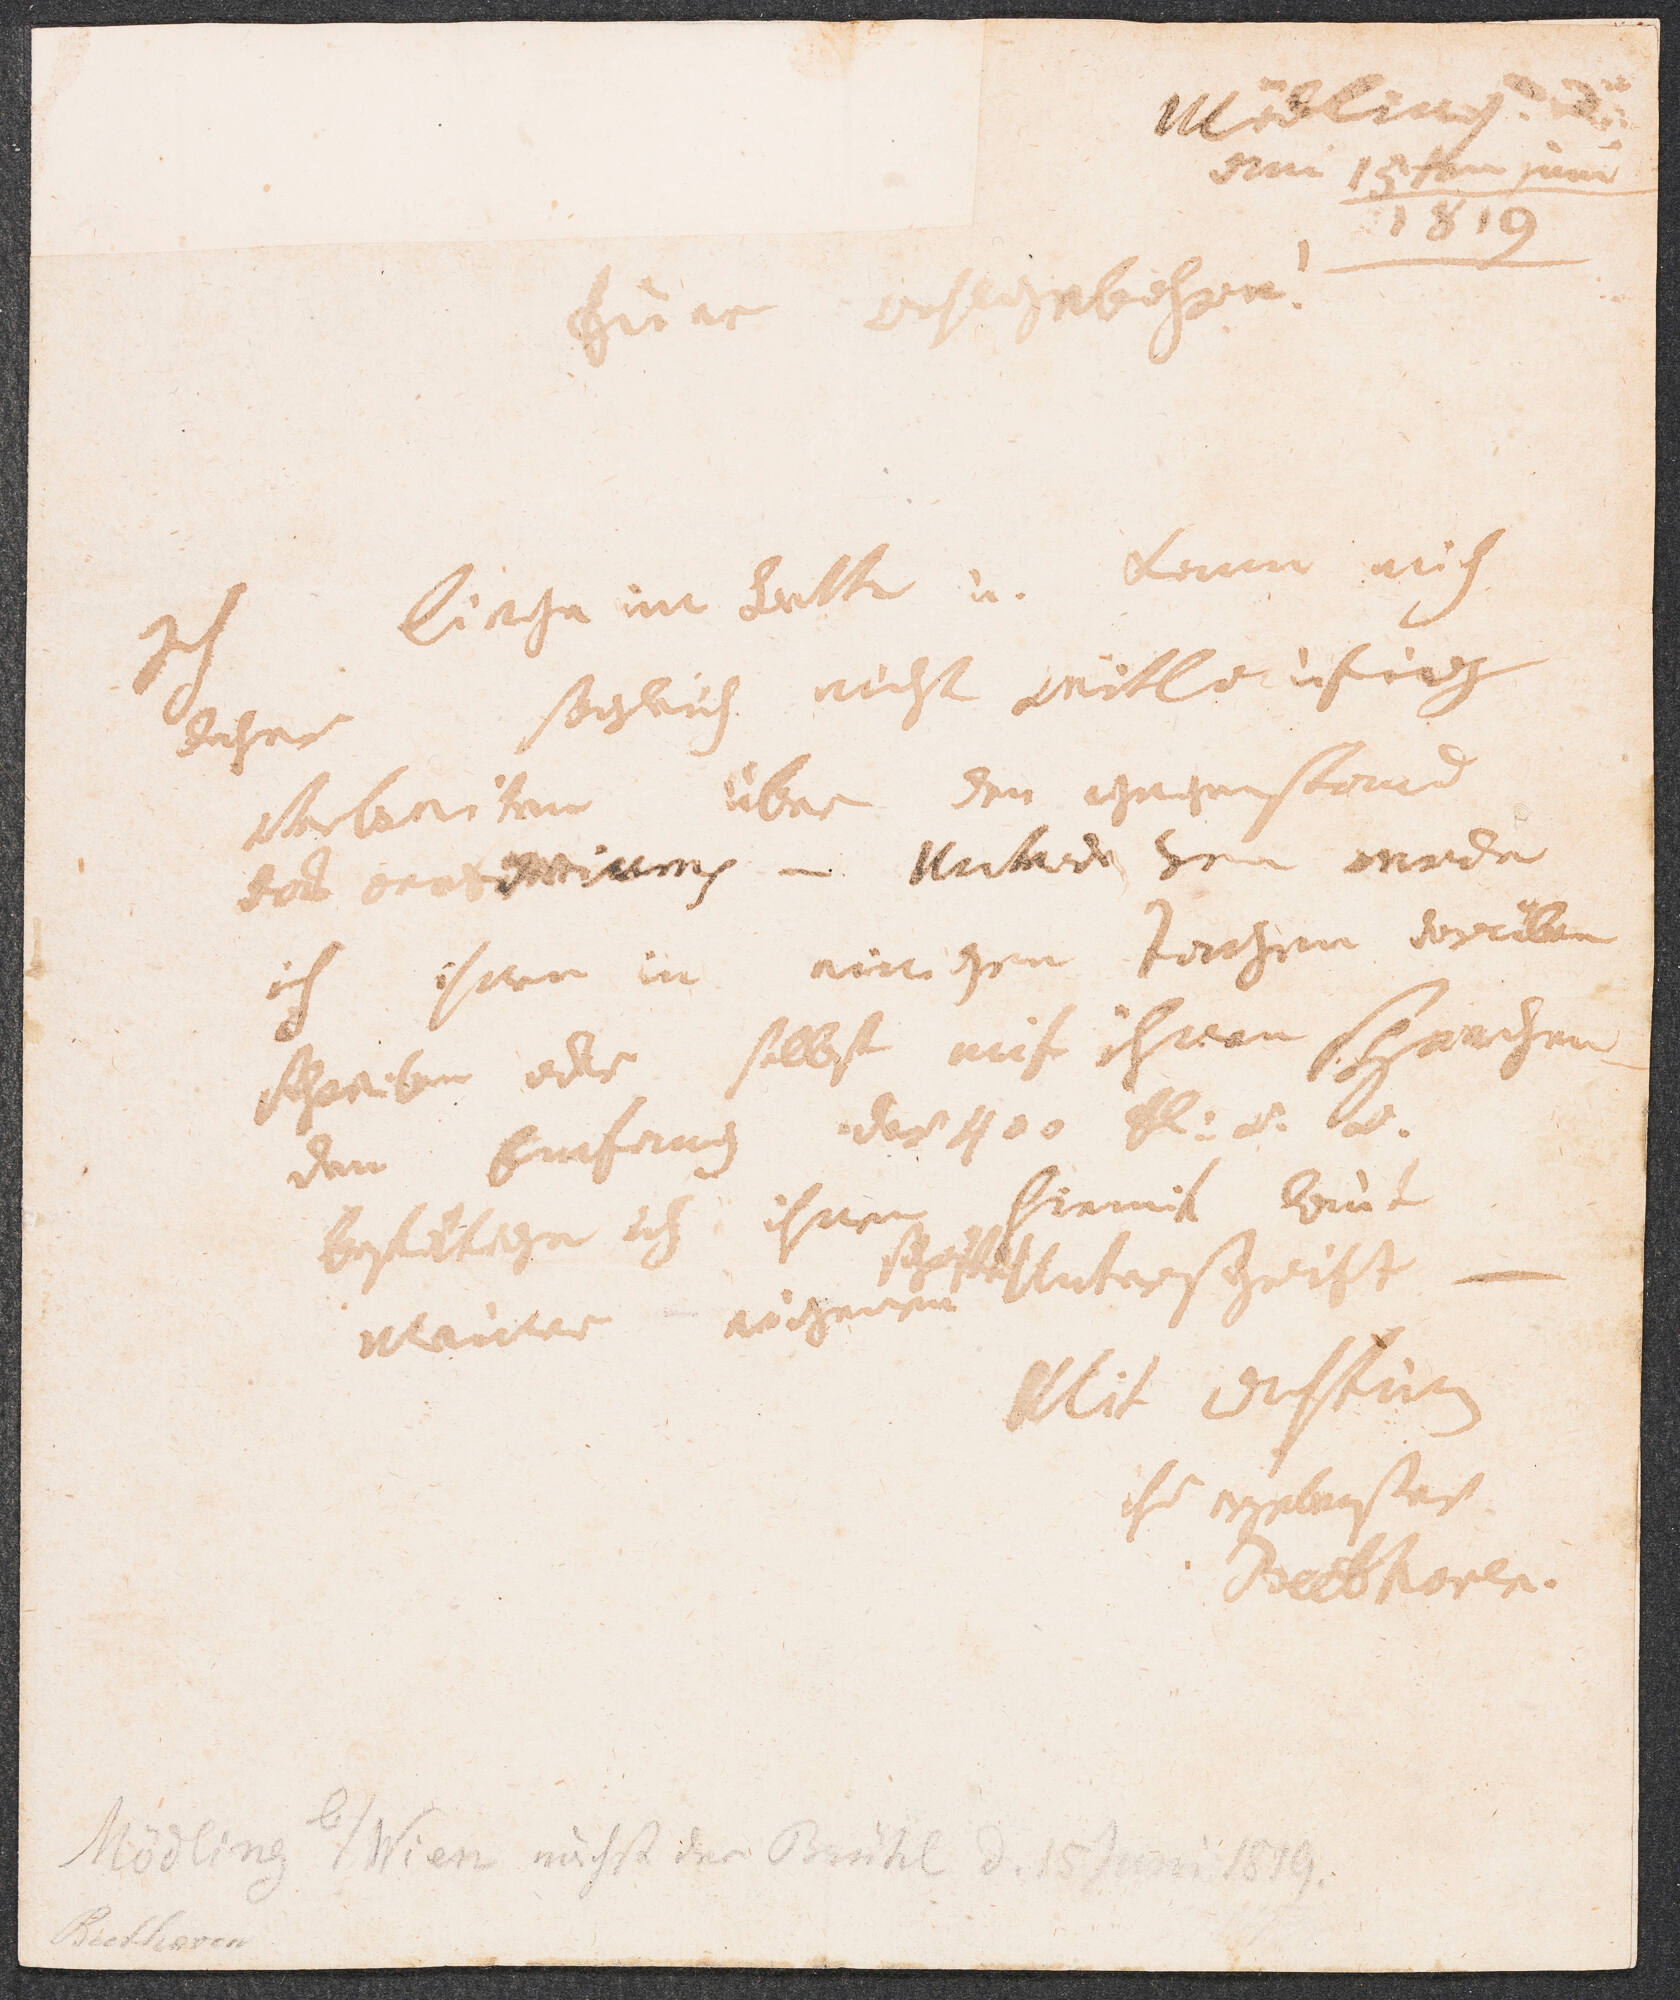 Mödling
am 15ten juni
1819
Euer wohlgebohrn!
Ich liege im Bette u. kann mich
daher sogleich nicht weitläufig
verbreiten über den gegenstand
des – Unterdessen werde
ich ihnen in einigen Tägen darüber
schreiben oder selbst mit ihnen sprechen
den Empfang der 400 fl: w. w.
bestätige ich ihnen hiemit laut
meiner eigenen Unterschrift —
Mit Achtung
ihr ergebenster
Beethoven.
Mödling b/Wien nächst der Brühl d. 15 Juni 1819.
Beethoven